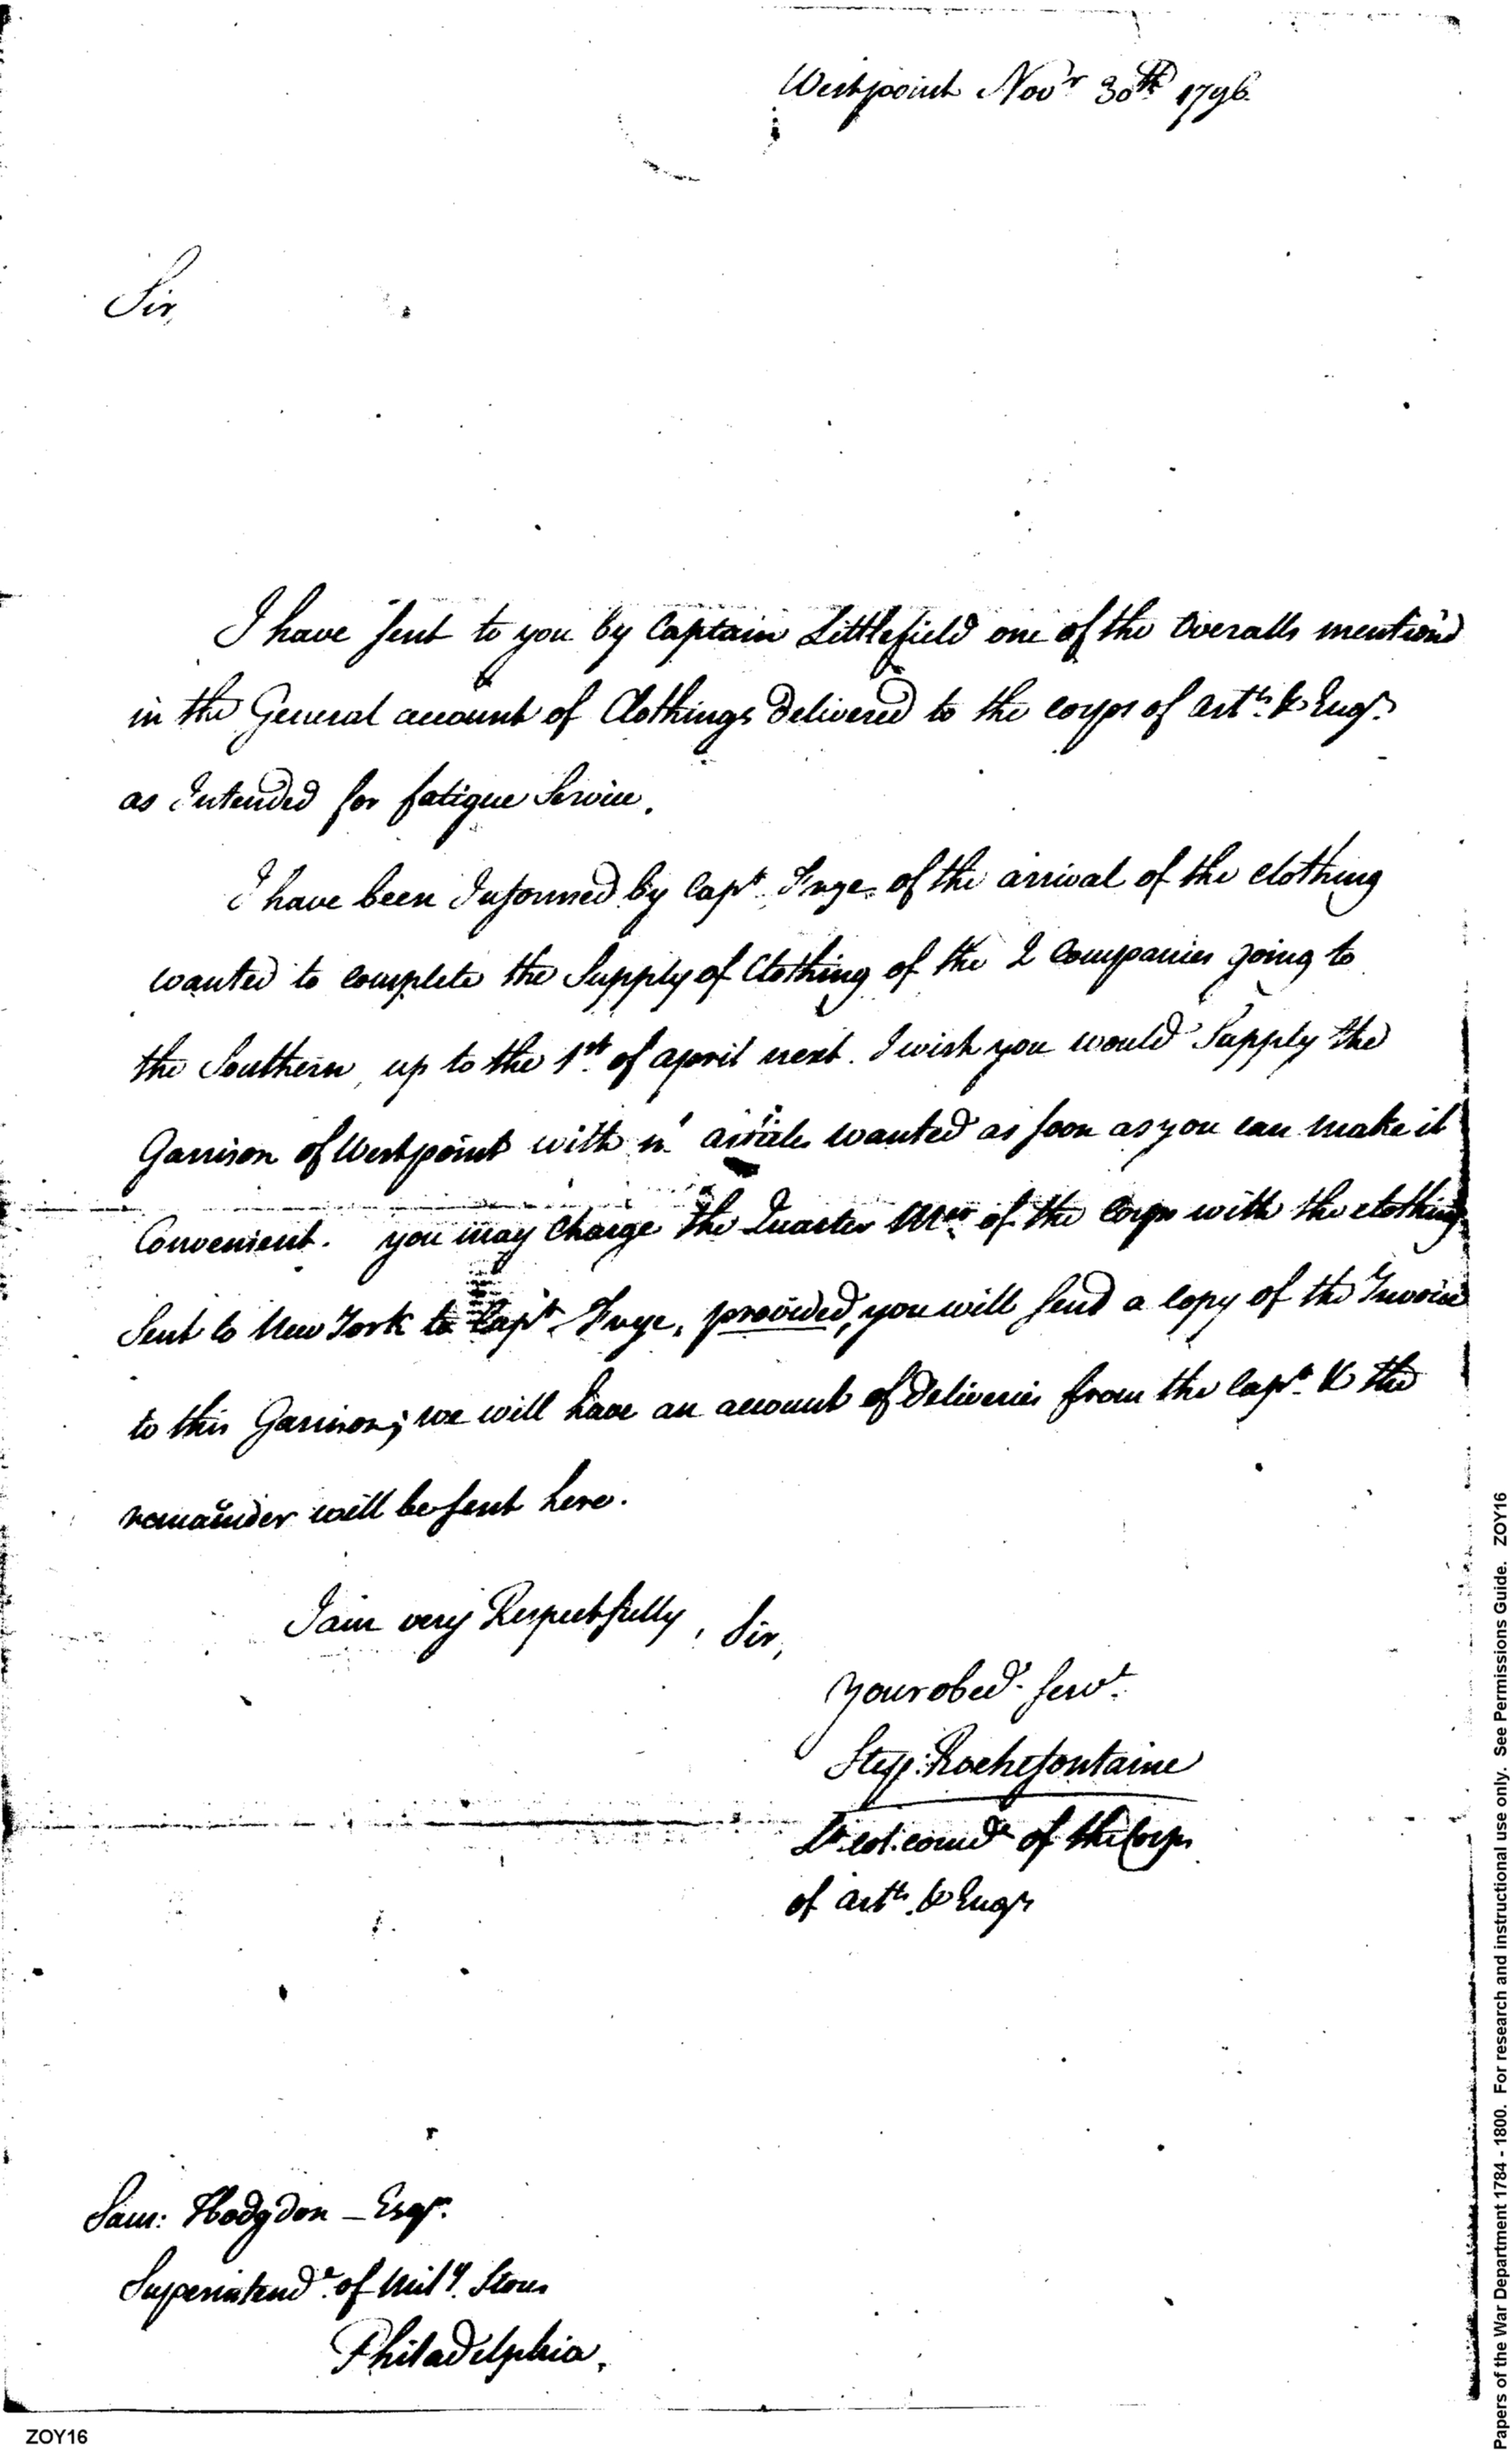 Westpoint Nov.r 30th 1796.
Sir,
I have sent to you by Captain Littlefield one of the Overalls mention'd
in the General account of Clothings Delivered to the corps of art.ts & Eng.rs
as Intended for fatigue Service.
I have been Informed by Capt. Frye of the arrival of the clothing
wanted to complete the Supply of Clothing of the 2 Companies going to
the Southern, up to the 1st of april next. I wish you would Supply the
Garrison of Westpoint with articles wanted as soon as you can make it
Convenient. you may Charge the Quarter Mer of the Corps with the clothing
Sent to New York to Capt. Frye, provided, you will send a copy of the Invoice
to this Garrison; we will have an account of Deliveries from the Capt. & the
remainder will be sent here.
I am very Respectfully, Sir,
Your obed.t serv.t
Step: Rochefontaine
Lt. col. comd.t of the Corps
of art.ts & Eng.rs
Sam: Hodgdon – Esqr.
Superintend.t of Mil.y Stores
Philadelphia.
ZOY16
Papers of the War Department 1784 - 1800. For research and instructional use only. See Permissions Guide. ZOY16